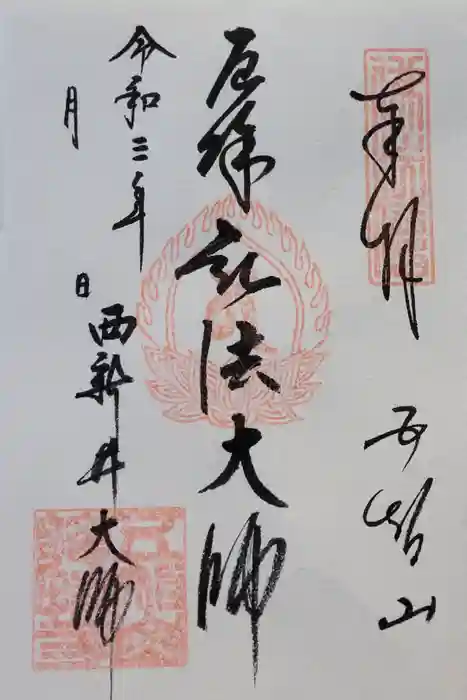 奉拝
五智山
厄除弘法大師
令和三年
月
日
西新井大師